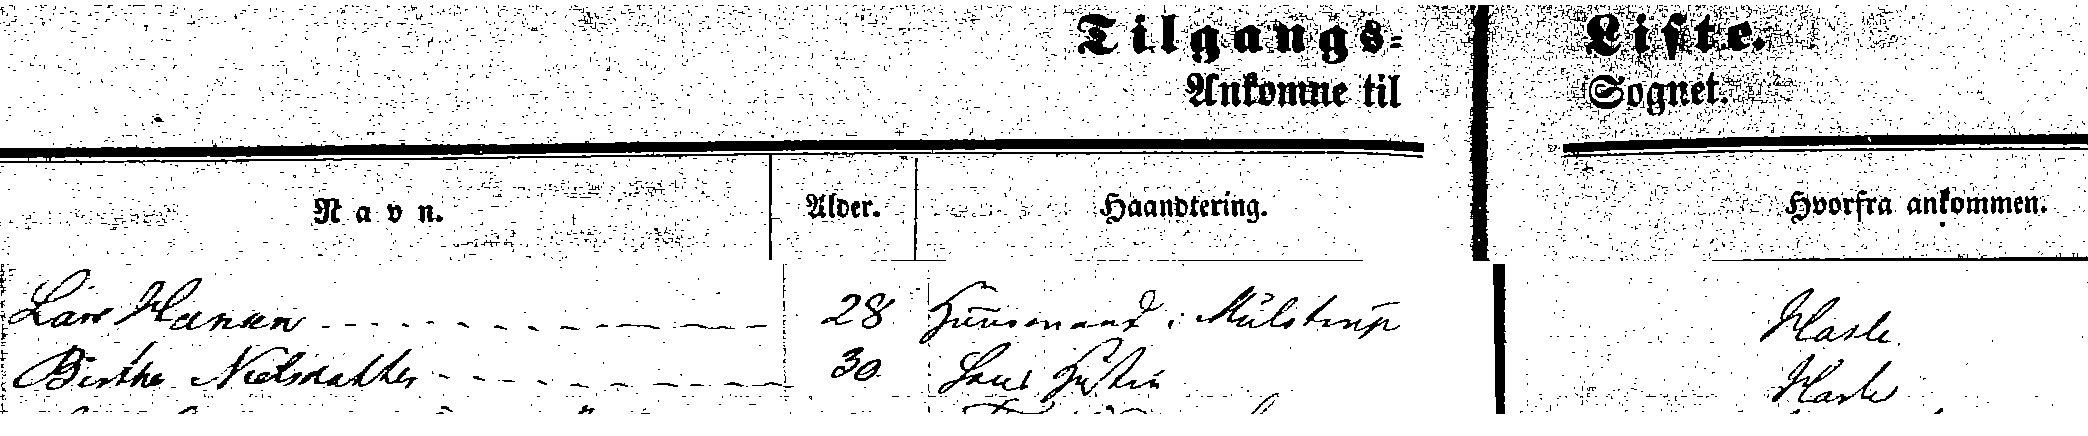 Tilgangs= Liste.
Ankomne til Sognet.
Navn. Alder. Haandtering. Hvorfra ankommen.
Lars Hansen 28 Huusmand i Mülstrup Hasle
Birthe Nielsdatter 30 Hans Hustru Hasle